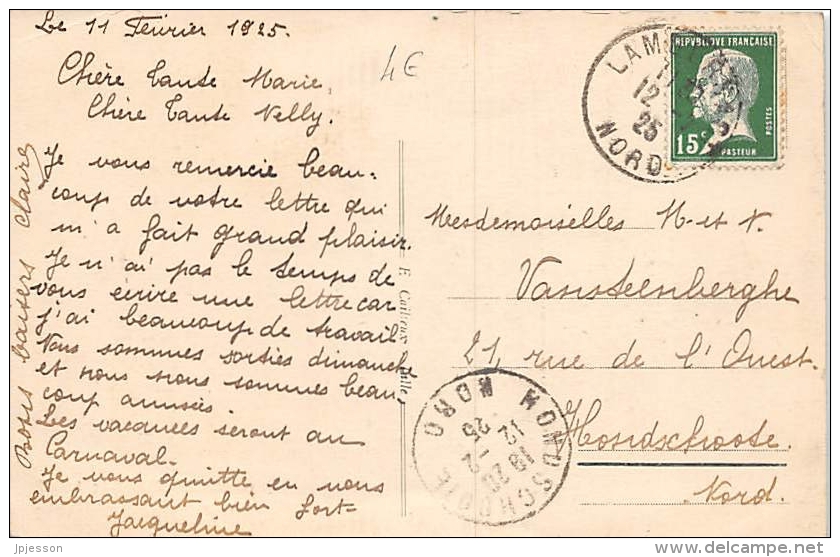 Le 11 Février 1925.
4€
Chère Tante Marie,
Chère Tante Nelly.
Je vous remercie beau-
coup de votre lettre qui
m'a fait grand plaisir.
Je n'ai pas le temps de
vous écrire une lettre car
j'ai beaucoup de travail
Nous sommes sorties dimanche
et nous nous sommes beau-
coup amusés.
Les vacances seront au
Carnaval.
Je vous quitte en vous
embrassant bien fort
Jacqueline
Bons baisers Claire
E. Cailteux
REPVBLIQUE FRANÇAISE
15c
POSTES
PASTEUR
12
25
NORD
Mesdemoiselles M. et N.
Vansteenberghe
21, rue de l'Ouest.
Hondschoote.
Nord.
HONDSCHOOTE
NORD
18 20
12 -2
25
jpjesson
www.delcampe.net